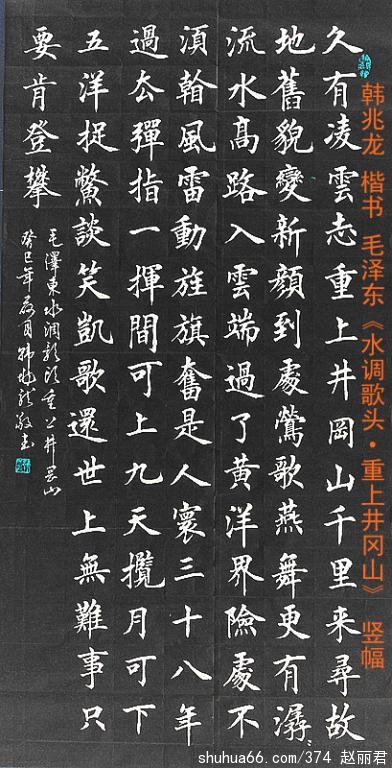 韩兆龙 楷书 毛泽东《水调歌头·重上井冈山》 竖幅
久有凌雲志重上井岡山千里来尋故
地舊貌變新顔到處鶯歌燕舞更有潺
流水高路入雲端過了黄洋界險處不
湏翰風雷動旌旗奮是人寰三十八年
過厺彈指一揮間可上九天攬月可下
五洋捉鱉談笑凱歌還世上無難事只
要肯登攀
毛澤東水調歌頭重上井岡山
癸巳年月韩兆龙敬书
shuhua66.com/374 赵丽君